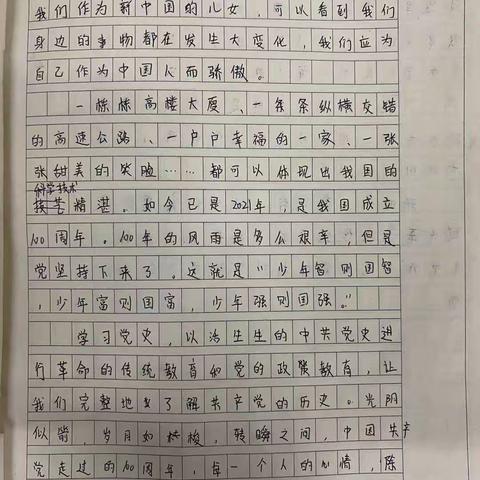 我们作为新中国的儿女，可以看到我们
身边的事物都在发生大变化，我们应为
自己作为中国人而骄傲。
一栋栋高楼大厦、一条条纵横交错
的高速公路、一户户幸福的一家、一张
张甜美的笑脸……都可以体现出我国的
科学技术
技艺精湛。如今已是2021年，是我国成立
100周年。100年的风雨是多么艰辛，但是
党坚持下来了。这就是“少年智则国智
，少年富则国富，少年强则国强。”
学习党史，以活生生的中共党史进
行革命的传统教育和党的政策教育，让
我们完整地了解共产党的历史。光阴
似箭，岁月如梭，转瞬之间，中国共产
党走过的100周年，每一个人的心情，陈